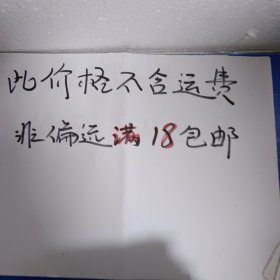 此价格不含运费
非偏远满18包邮